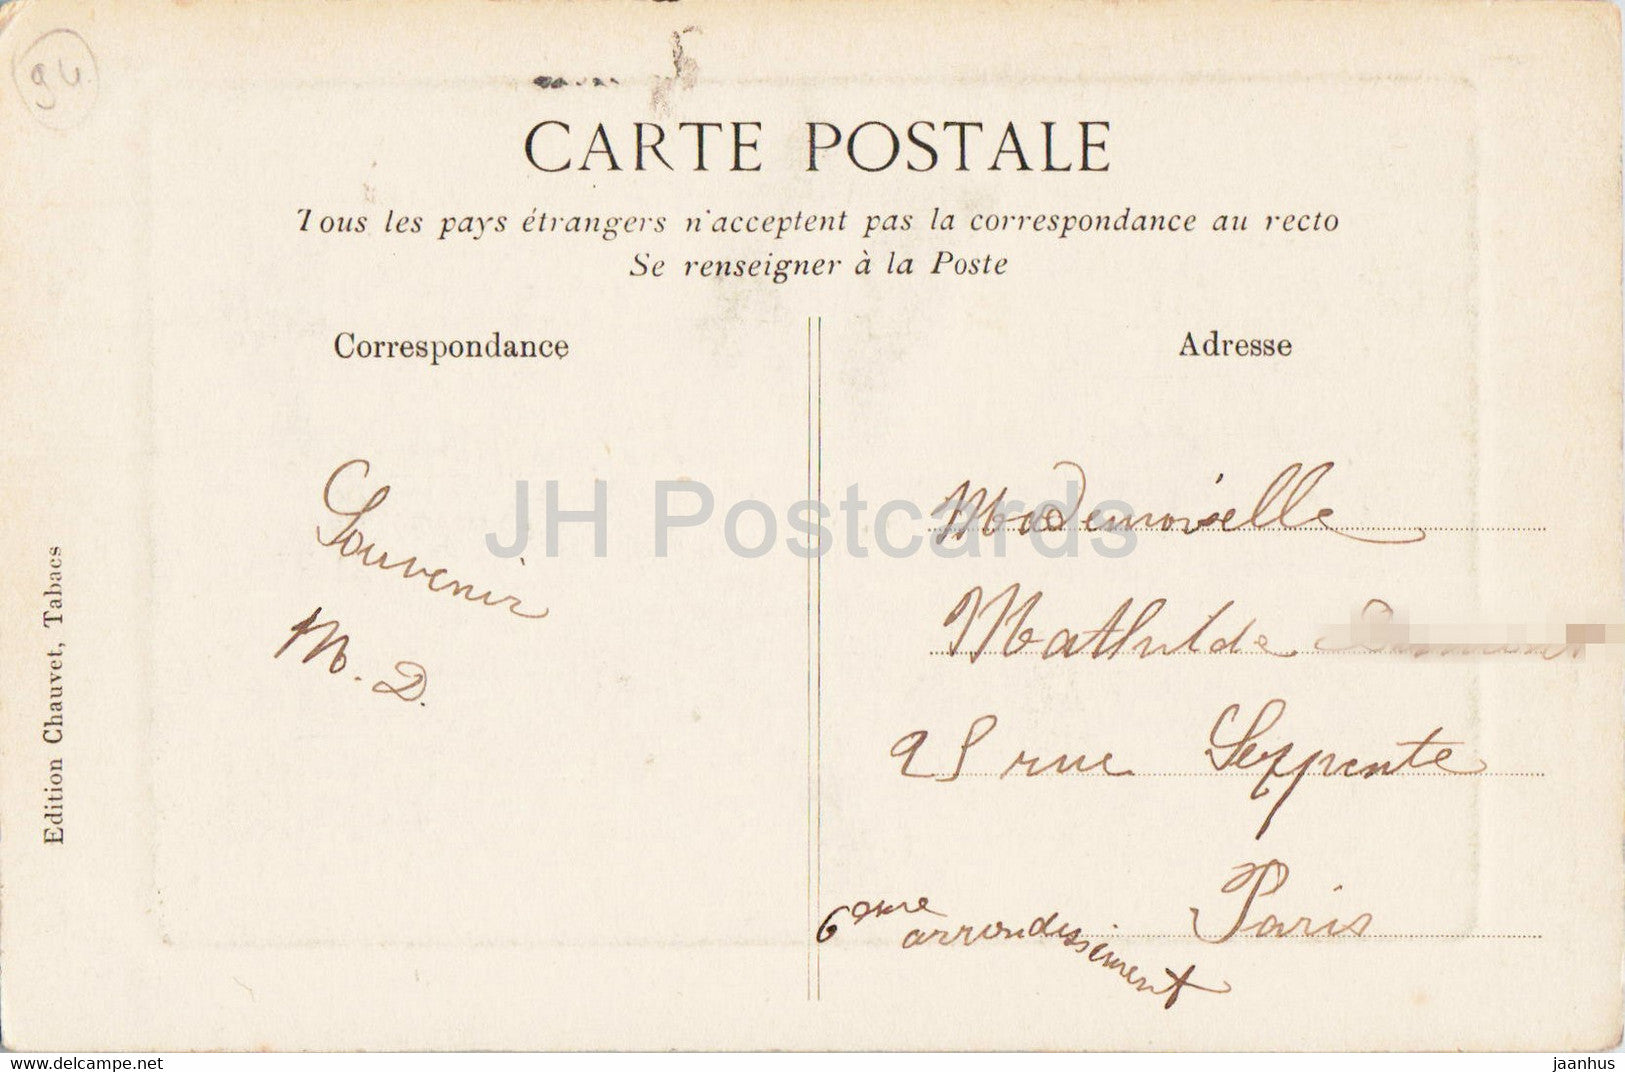 94
CARTE POSTALE
Tous les pays étrangers n'acceptent pas la correspondance au recto
Se renseigner à la Poste
Correspondance
Adresse
Edition Chauvet, Tabacs
Souvenir
M. D.
Mademoiselle
Mathilde
25 rue Serpente
Paris
6eme arrondissement
JH Postcards
https://www.ebay.com
jaanhus